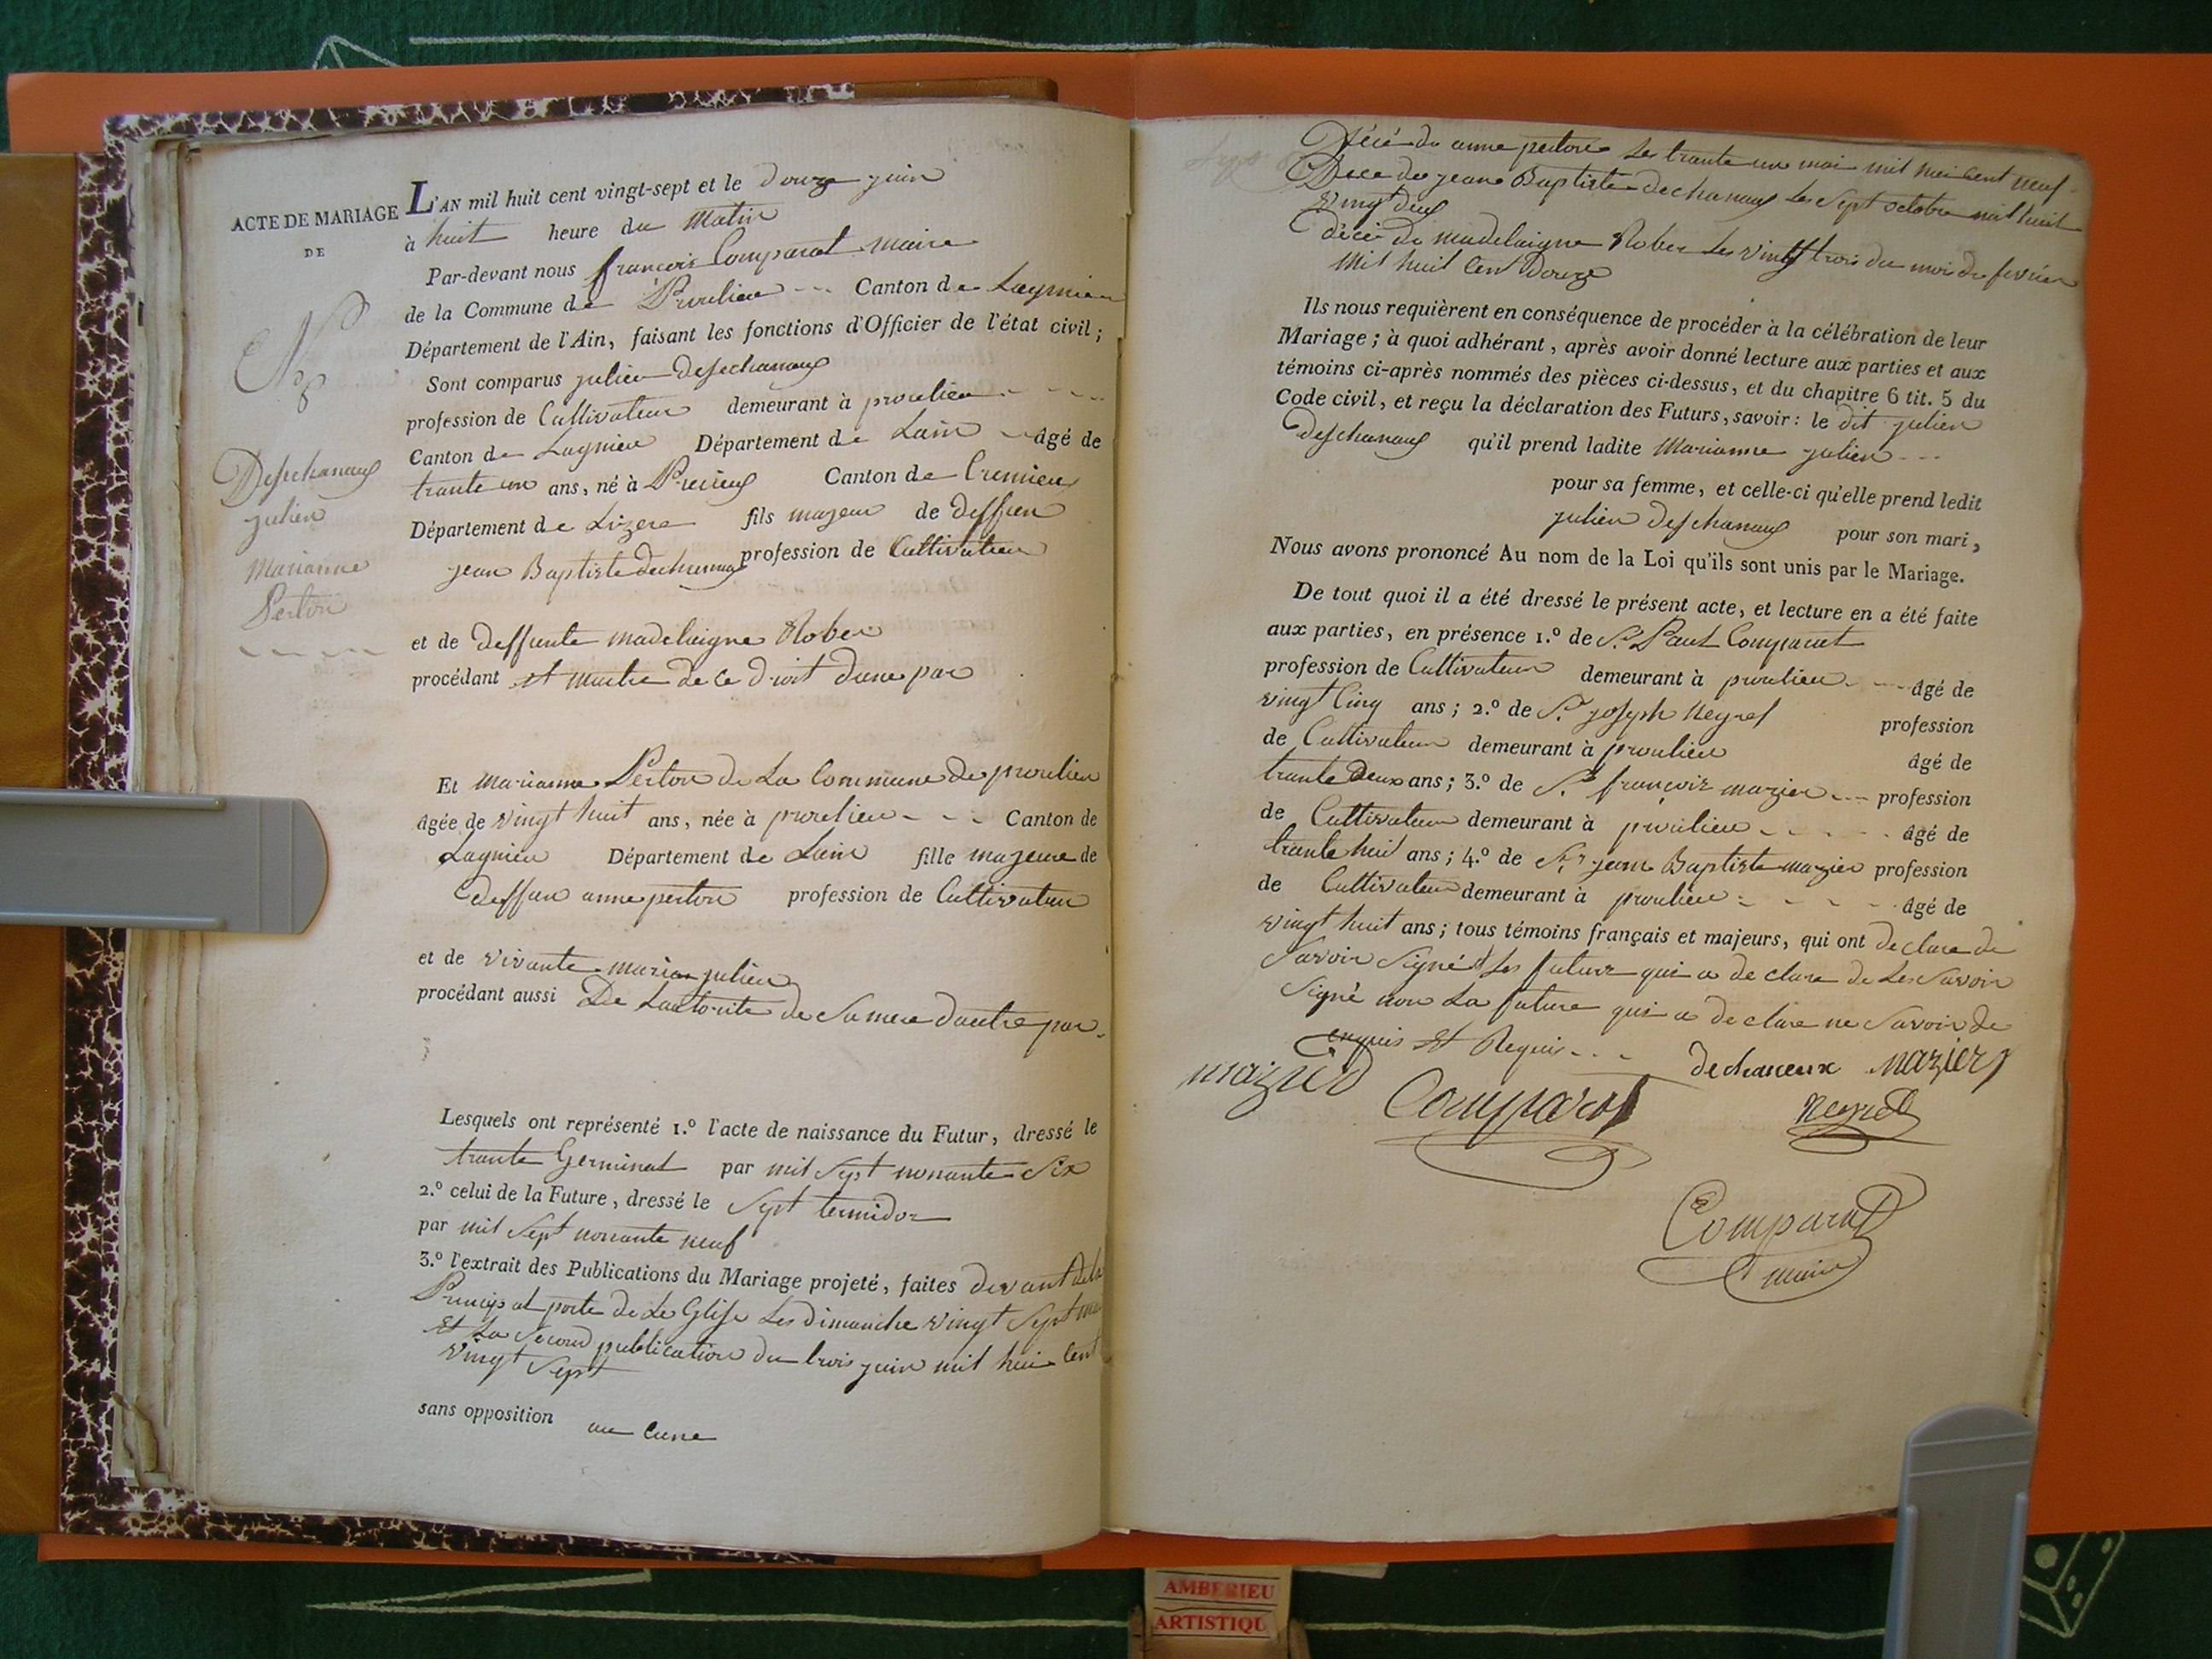 ACTE DE MARIAGE
DE
N° 8
Deschanaux
julien
marianne
Perton
L'AN mil huit cent vingt-sept et le douze juin
à huit heure du matin
Par-devant nous francois Comparat maire
de la Commune de Proulieu Canton de Lagnieu
Département de l'Ain, faisant les fonctions d'Officier de l'état civil;
Sont comparus julien deschanaux
profession de Cultivateur demeurant à proulieu
Canton de Lagnieu Département de Lain âgé de
trante un ans, né à Canton de Cremieu
Département de Lizere fils majeur de deffun
jean Baptiste dechanaux profession de Cultivateur
et de deffunte madelaigne Rober
procédant et maitre de ce droit dune par
Et marianne Perton de La Commune de proulieu
âgée de vingt huit ans, née à proulieu Canton de
Lagnieu Département de Lain fille majeure de
deffun anne perton profession de Cultivateur
et de vivante marian julien
procédant aussi De Lautorite de Samere dautre par
Lesquels ont représenté 1.º l'acte de naissance du Futur, dressé le
trante Germinal par mil Sept nonante Six
2.º celui de la Future, dressé le Sept termidor
par mil Sept nonante neuf
3.º l'extrait des Publications du Mariage projeté, faites devant dela
Principal porte de Le Glise Les dimanche vingt Sept mai
et La Second publication du trois juin mil hui Cent
vingt Sept
sans opposition au cune
décé du anne perton Les trante un mai mil hui Cent neuf
Dece du jean Baptiste dechanaux Les Sept octobre mil huit
vingt deux
décé de madelaigne Rober Les vingt trois du mois du fevrier
mil huit Cent Douze
Ils nous requièrent en conséquence de procéder à la célébration de leur
Mariage; à quoi adhérant, après avoir donné lecture aux parties et aux
témoins ci-après nommés des pièces ci-dessus, et du chapitre 6 tit. 5 du
Code civil, et reçu la déclaration des Futurs, savoir: le dit julien
deschanaux qu'il prend ladite Marianne julien
pour sa femme, et celle-ci qu'elle prend ledit
julien deschanaux pour son mari,
Nous avons prononcé Au nom de la Loi qu'ils sont unis par le Mariage.
De tout quoi il a été dressé le présent acte, et lecture en a été faite
aux parties, en présence 1.º de Sr Paul Comparat
profession de Cultivateur demeurant à proulieu âgé de
vingt Cinq ans; 2.º de Sr joseph Neyret profession
de Cultivateur demeurant à proulieu âgé de
trante deux ans; 3.º de Sr françois mazier profession
de Cultivateur demeurant à proulieu âgé de
trante huit ans; 4.º de Sr jean Baptiste mazier profession
de Cultivateur demeurant à proulieu âgé de
vingt huit ans; tous témoins français et majeurs, qui ont declare de
Savoir Signé et Les future qui a de clare de Les Savoir
Signé non La future qui a declare ne Savoir de
enquis et Requis
dechaneux mazier
mazier
Comparat
Neyret
Comparat
maire
AMBERIEU
ARTISTIQU